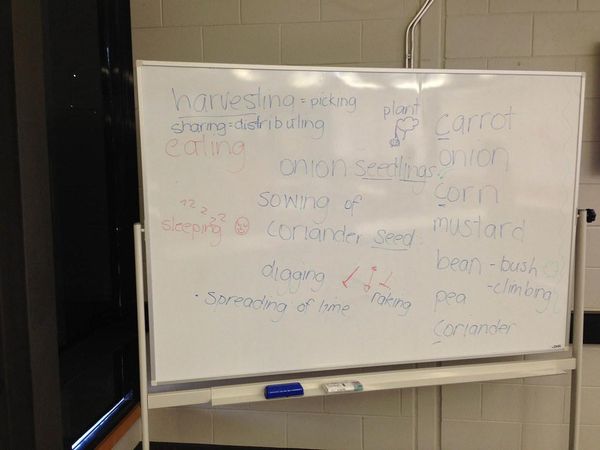 harvesting = picking
sharing = distributing
eating
plant
onion seedlings
sowing of
coriander seed
zzzzz
sleeping
digging
raking
• spreading of lime
carrot
onion
corn
mustard
bean - bush
- climbing
pea
coriander